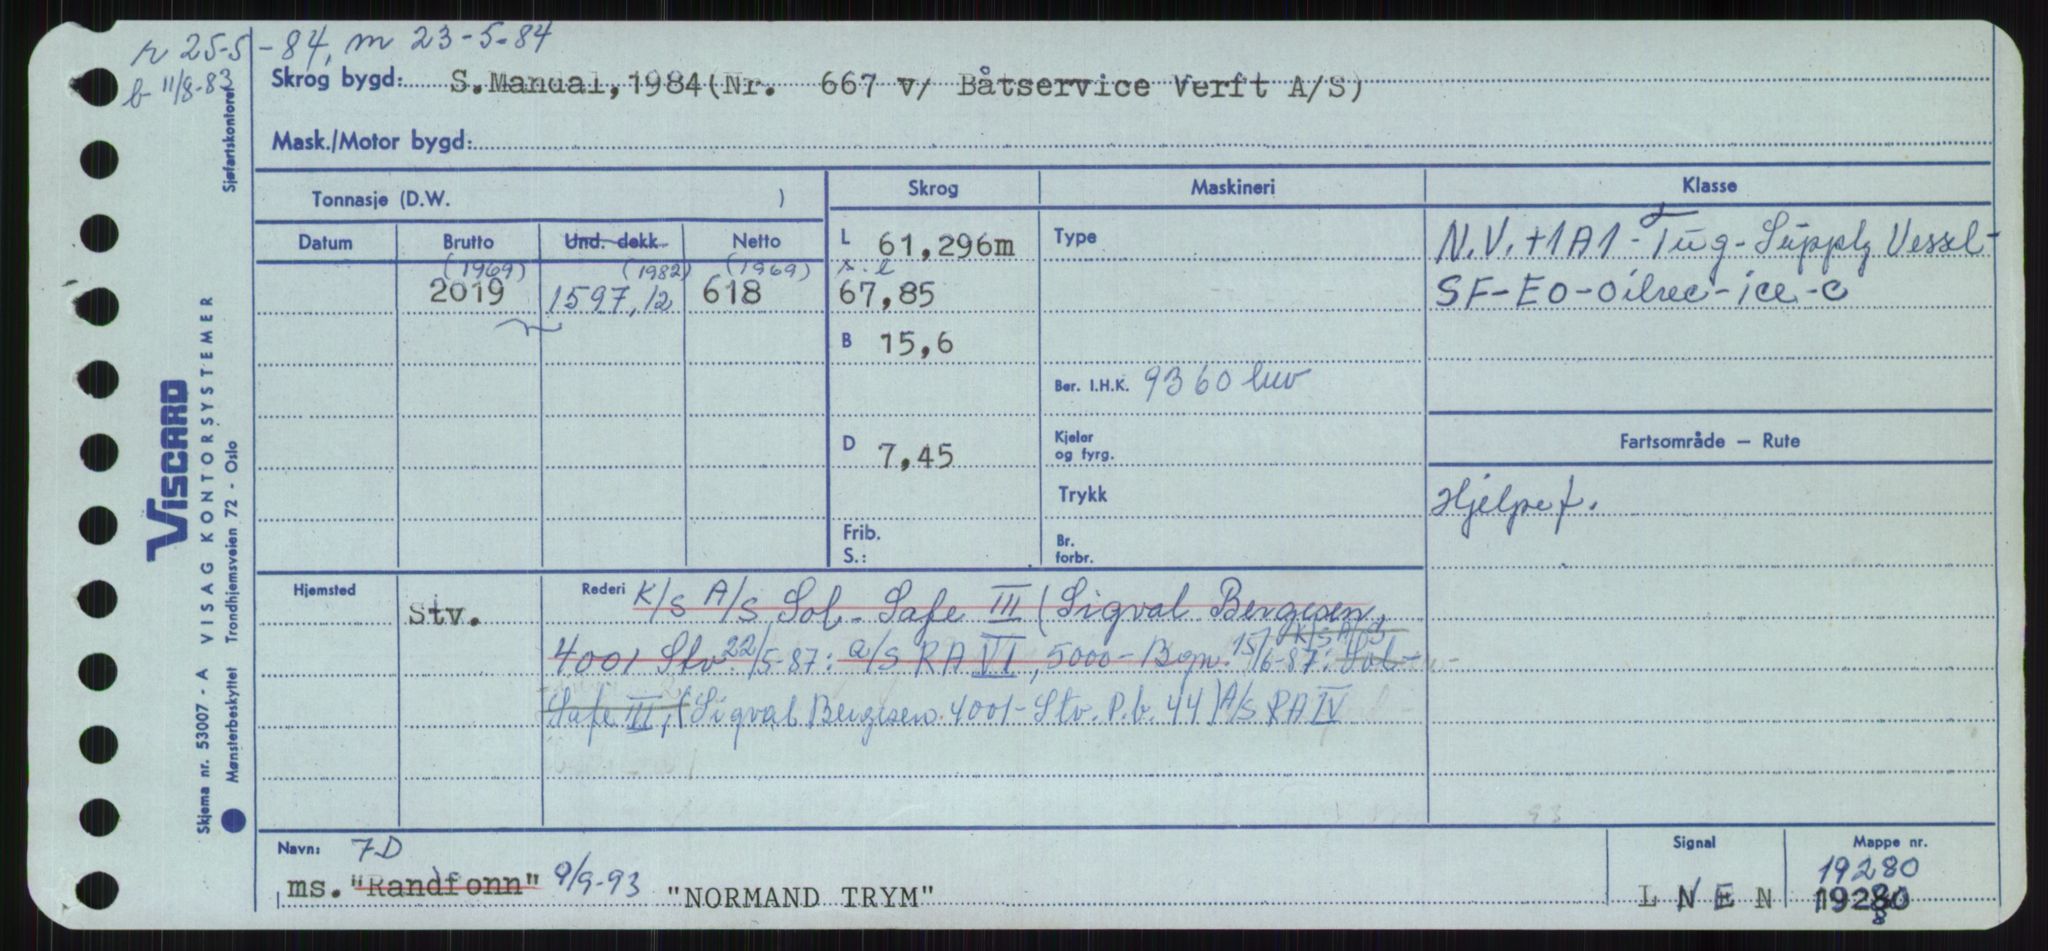 r 25-5-84, m 23-5-84
b 11/8-83
Skrog bygd: S.Manual,1984(Nr. 667 v/ Båtservice Verft A/S)
Mask./Motor bygd:
Sjøfartskontoret
Tonnasje (D.W. )
Skrog
Maskineri
Klasse
Datum
Brutto
Und. dekk
Netto
(1969)
(1982)
(1969)
2019
1597,12
618
L 61,296m
67,85
B 15,6
D 7,45
Frib.
S.:
Type
Ber. I.H.K. 9360
Kjeler
og fyrg.
Trykk
Br.
forbr.
N.V. +1A1 - Tug - Supply Vessel -
SF-E0-oilrec-ice-C
Fartsområde – Rute
Hjelpef.
Hjemsted
Stv.
Rederi K/S A/S Sol-Safe III (Sigval Bergesen,
4001 Stv 22/5-87: a/s RA VI, 5000-Bgn. 15/6-87: K/S A/S Sol-
Safe III, (Sigval Bergesen. 4001-Stv. P.b. 44) A/S RA IV
Navn: 7D
ms. "Randfonn" 9/9-93 "NORMAND TRYM"
Signal
LNEN
Mappe nr.
19280
19280
8
VISCARD
VISAG KONTORSYSTEMER
Skjema nr. 53007 - A
Mønsterbeskyttet Trondhjemsveien 72 - Oslo